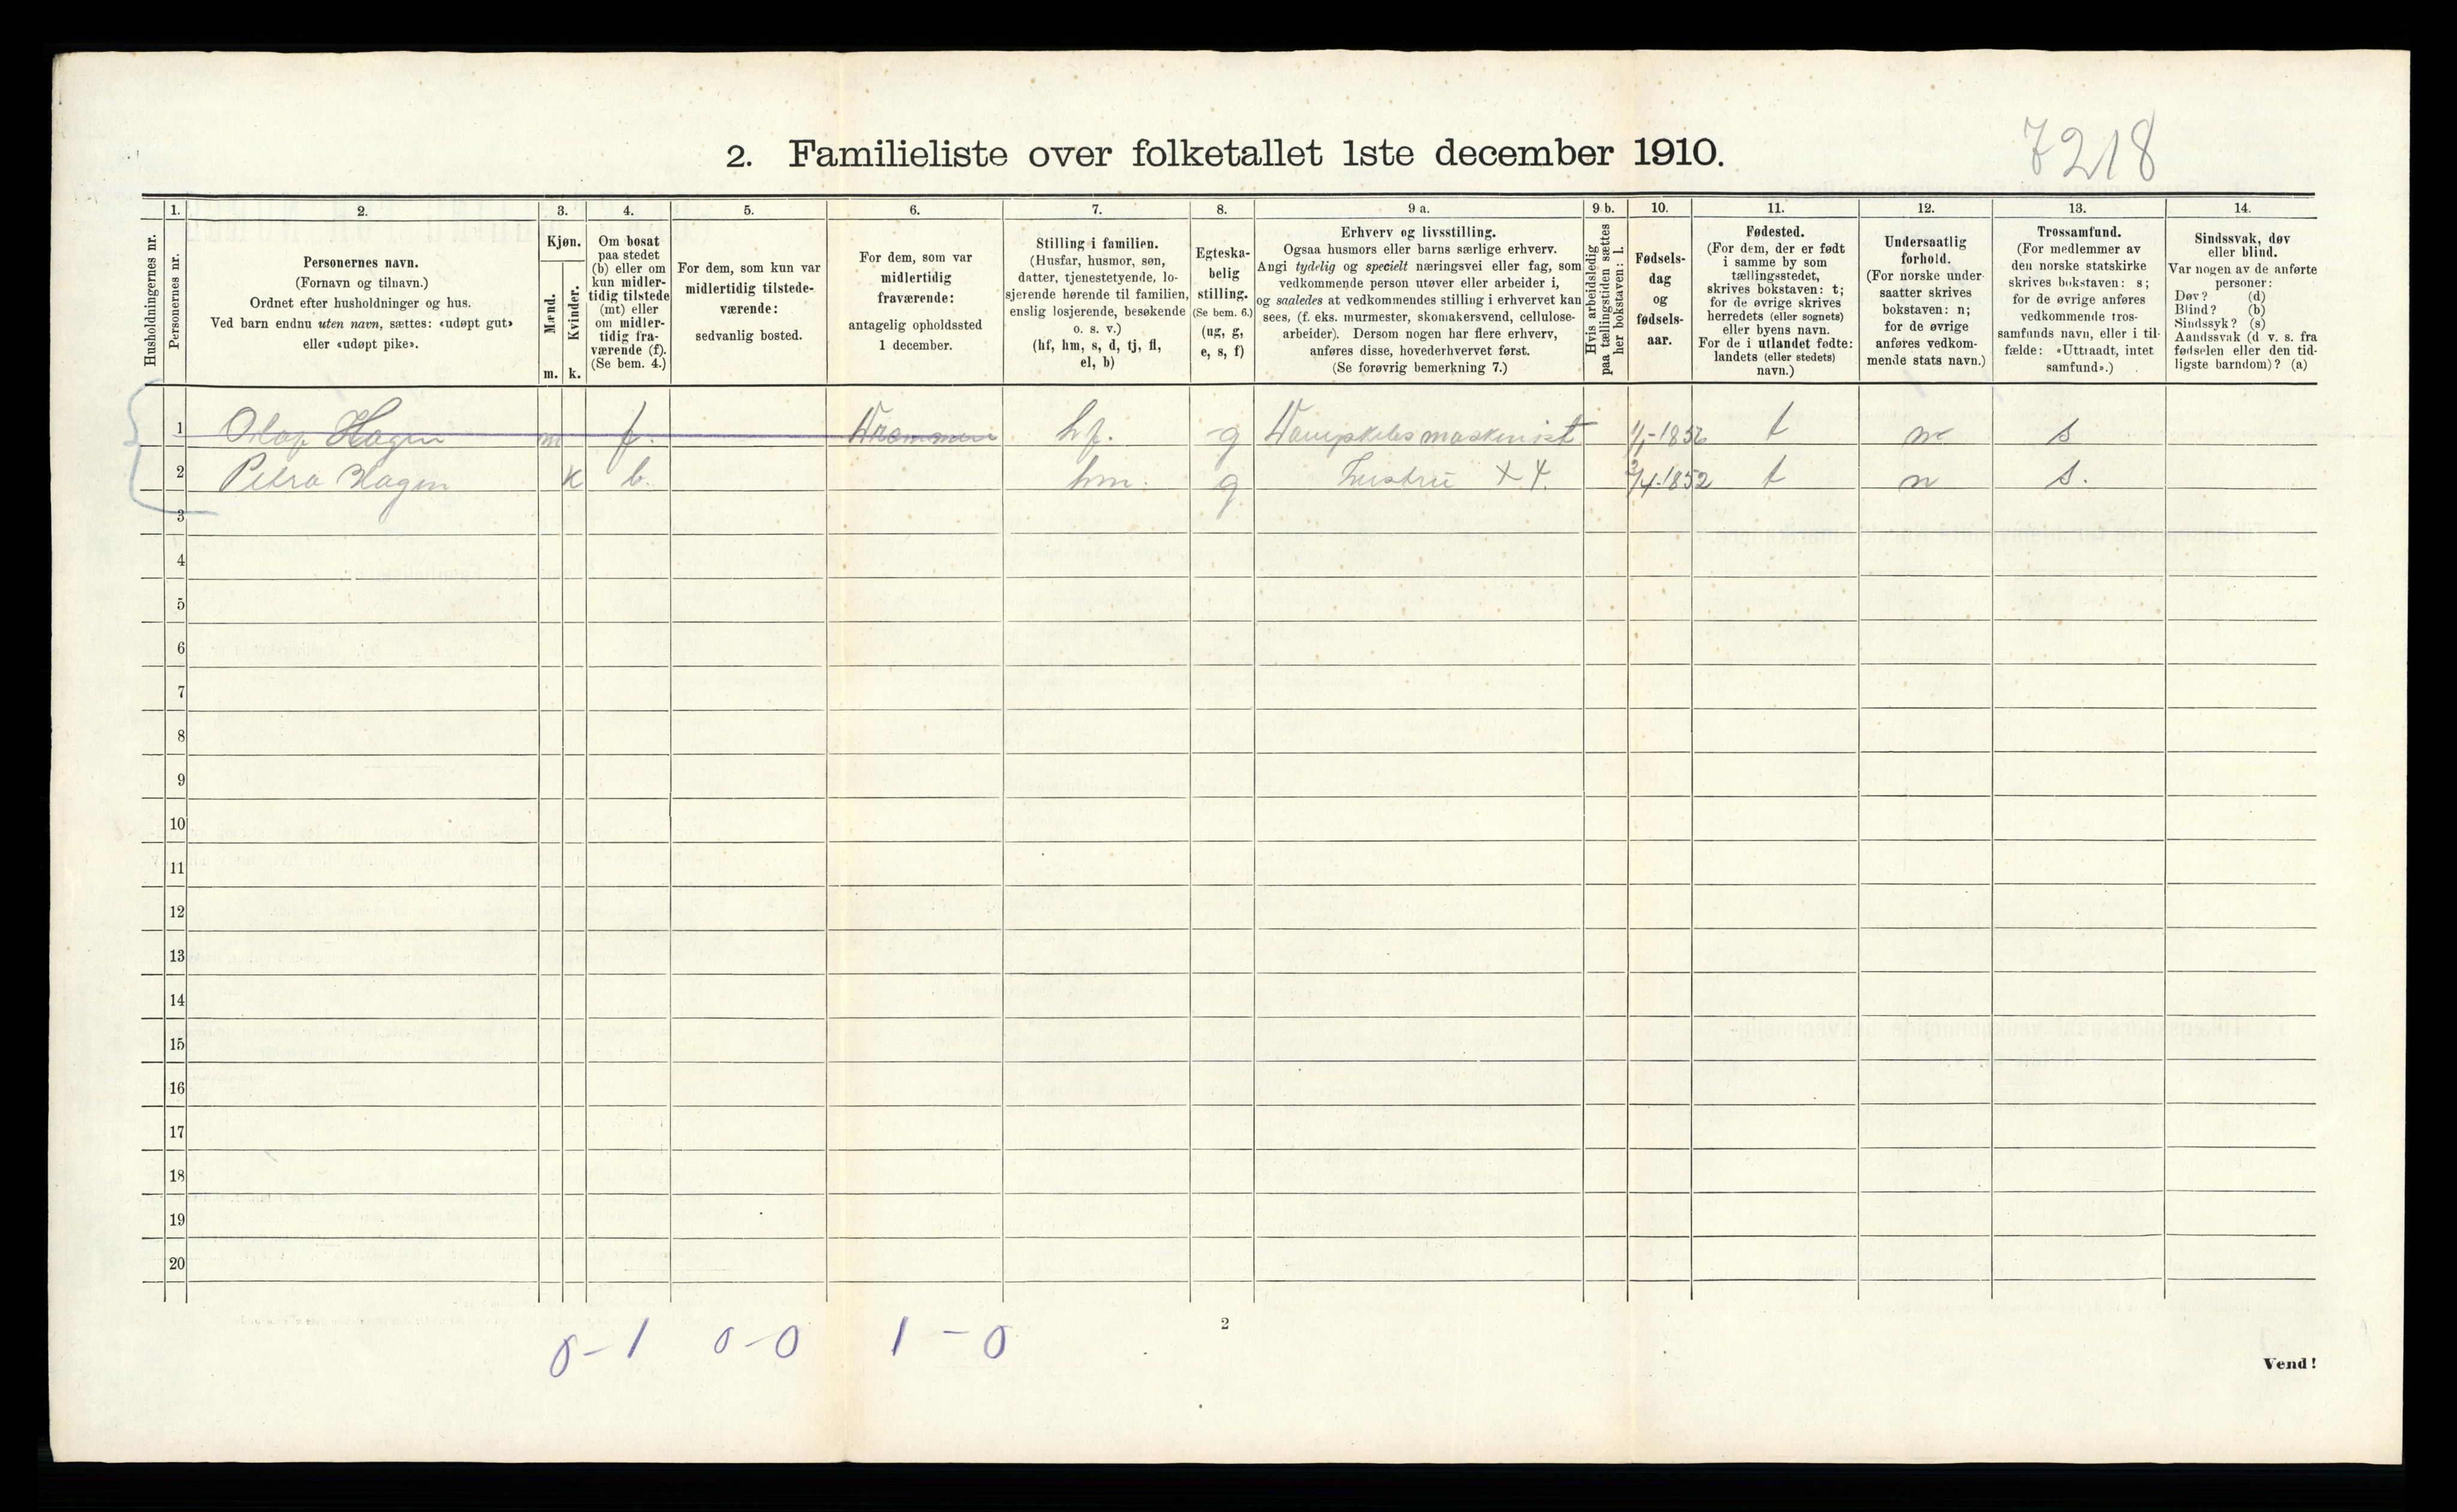 7218
2. Familieliste over folketallet 1ste december 1910.
1. 2. 3. 4. 5. 6. 7. 8. 9 a. 9 b. 10. 11. 12. 13. 14.
Husholdningernes nr.
Personernes nr.
Personernes navn.
(Fornavn og tilnavn.)
Ordnet efter husholdninger og hus.
Ved barn endnu uten navn, sættes: «udøpt gut»
eller «udøpt pike».
Kjøn.
Mænd.
Kvinder.
m. k.
Om bosat
paa stedet
(b) eller om
kun midler-
tidig tilstede
(mt) eller
om midler-
tidig fra-
værende (f).
(Se bem. 4.)
For dem, som kun var
midlertidig tilstede-
værende:
sedvanlig bosted.
For dem, som var
midlertidig
fraværende:
antagelig opholdssted
1 december.
Stilling i familien.
(Husfar, husmor, søn,
datter, tjenestetyende, lo-
sjerende hørende til familien,
enslig losjerende, besøkende
o. s. v.)
(hf, hm, s, d, tj, fl,
el, b)
Egteska-
belig
stilling.
(Se bem. 6.)
(ug, g,
e, s, f)
Erhverv og livsstilling.
Ogsaa husmors eller barns særlige erhverv.
Angi tydelig og specielt næringsvei eller fag, som
vedkommende person utøver eller arbeider i,
og saaledes at vedkommendes stilling i erhvervet kan
sees, (f. eks. murmester, skomakersvend, cellulose-
arbeider). Dersom nogen har flere erhverv,
anføres disse, hovederhvervet først.
(Se forøvrig bemerkning 7.)
Hvis arbeidsledig
paa tællingstiden sættes
her bokstaven: l.
Fødsels-
dag
og
fødsels-
aar.
Fødested.
(For dem, der er født
i samme by som
tællingsstedet,
skrives bokstaven: t;
for de øvrige skrives
herredets (eller sognets)
eller byens navn.
For de i utlandet fødte:
landets (eller stedets)
navn.)
Undersaatlig
forhold.
(For norske under-
saatter skrives
bokstaven: n;
for de øvrige
anføres vedkom-
mende stats navn.)
Trossamfund.
(For medlemmer av
den norske statskirke
skrives bokstaven: s;
for de øvrige anføres
vedkommende tros-
samfunds navn, eller i til-
fælde: «Uttraadt, intet
samfund».)
Sindssvak, døv
eller blind.
Var nogen av de anførte
personer:
Døv? (d)
Blind? (b)
Sindssyk? (s)
Aandssvak (d. v. s. fra
fødselen eller den tid-
ligste barndom)? (a)
1 Olaf Hagen m f. Drammen hf. g Dampskibsmaskinist t n s
2 Petra Hagen k b. hm. g Hustru X 4. 3/4-1852 t n s.
3
4
5
6
7
8
9
10
11
12
13
14
15
16
17
18
19
20
0-1 0-0 1-0
2
Vend!